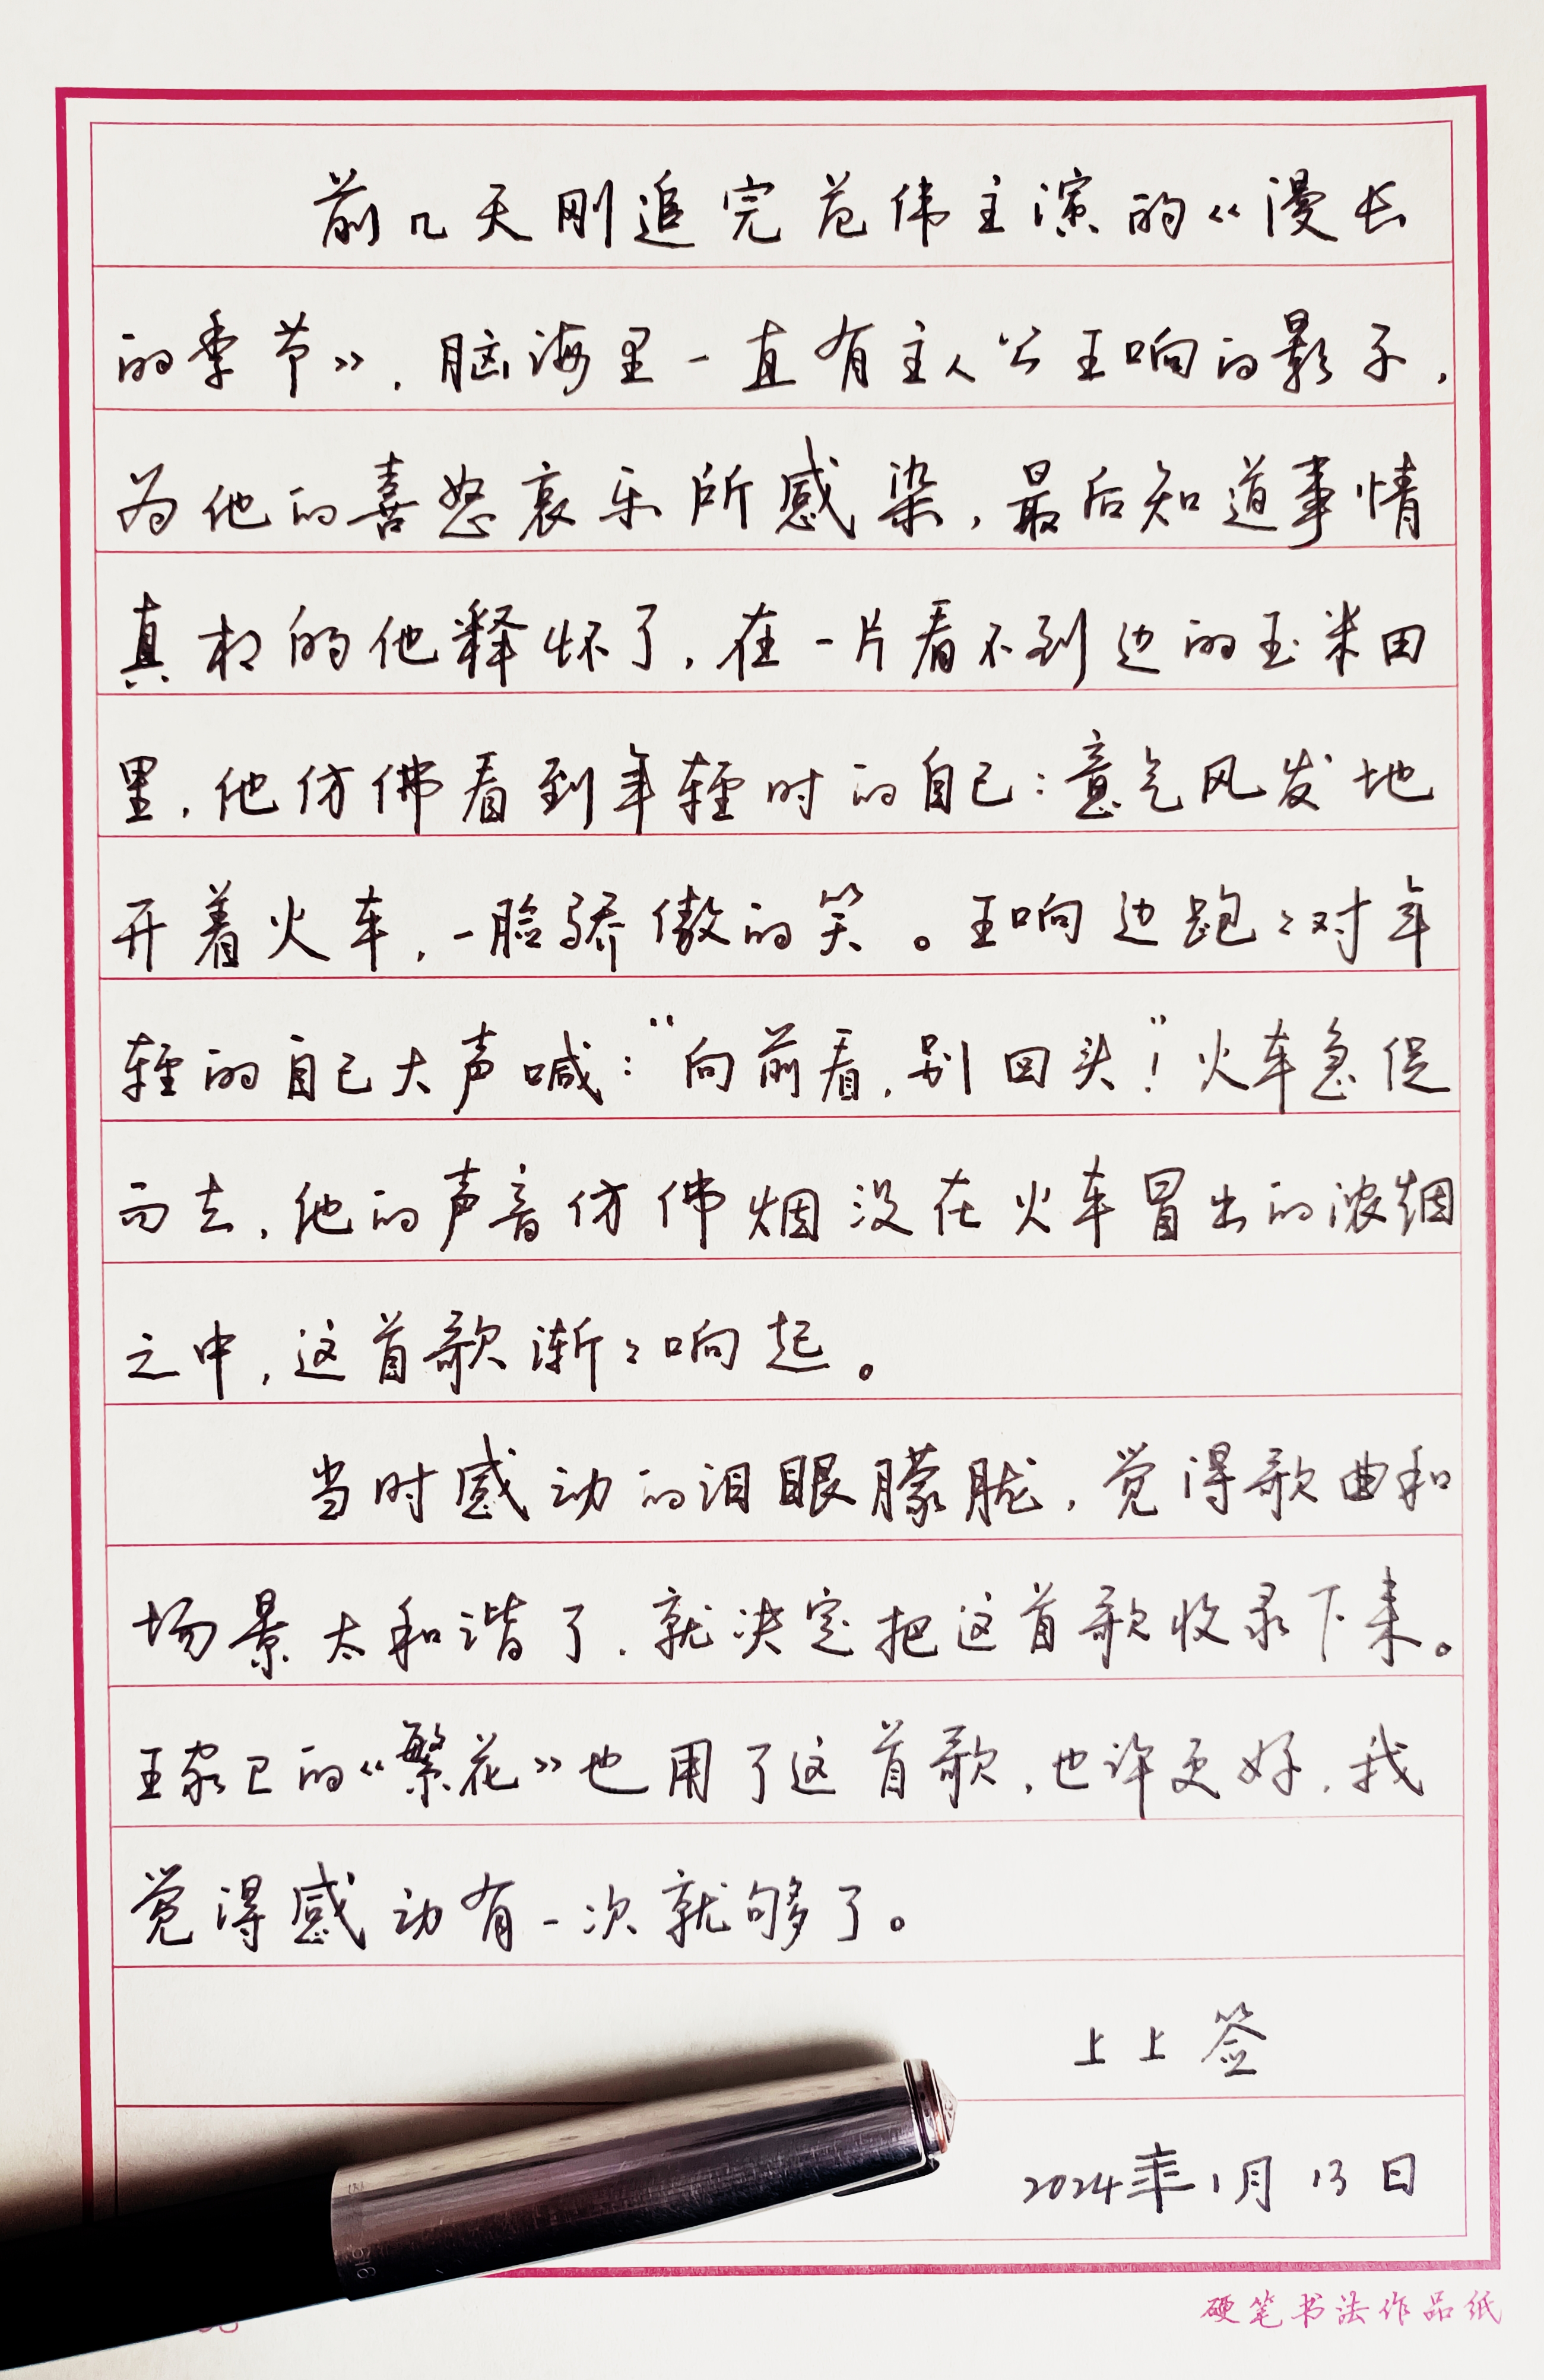 前几天刚追完范伟主演的《漫长
的季节》，脑海里一直有主人公王响的影子，
为他的喜怒哀乐所感染，最后知道事情
真相的他释怀了，在一片看不到边的玉米田
里，他仿佛看到年轻时的自己：意气风发地
开着火车，一脸骄傲的笑。王响边跑〻对年
轻的自己大声喊：“向前看，别回头”！火车急促
而去，他的声音仿佛烟没在火车冒出的浓烟
之中，这首歌渐〻响起。
当时感动的泪眼朦胧，觉得歌曲和
场景太和谐了，就决定把这首歌收录下来。
王家卫的《繁花》也用了这首歌，也许更好，我
觉得感动有一次就够了。
上上签
2024年1月13日
硬笔书法作品纸